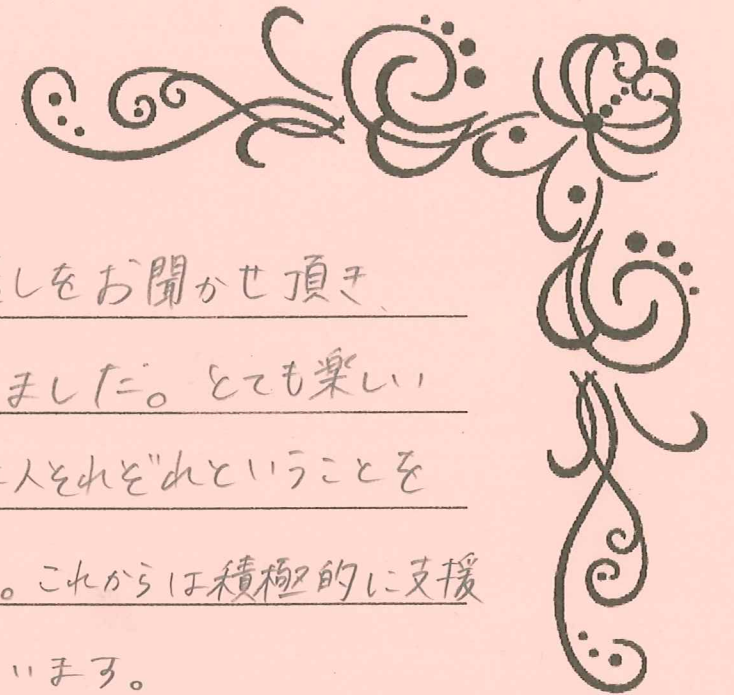 しをお聞かせ頂き、
ました。とても楽しい
人それぞれということを
。これからは積極的に支援
います。